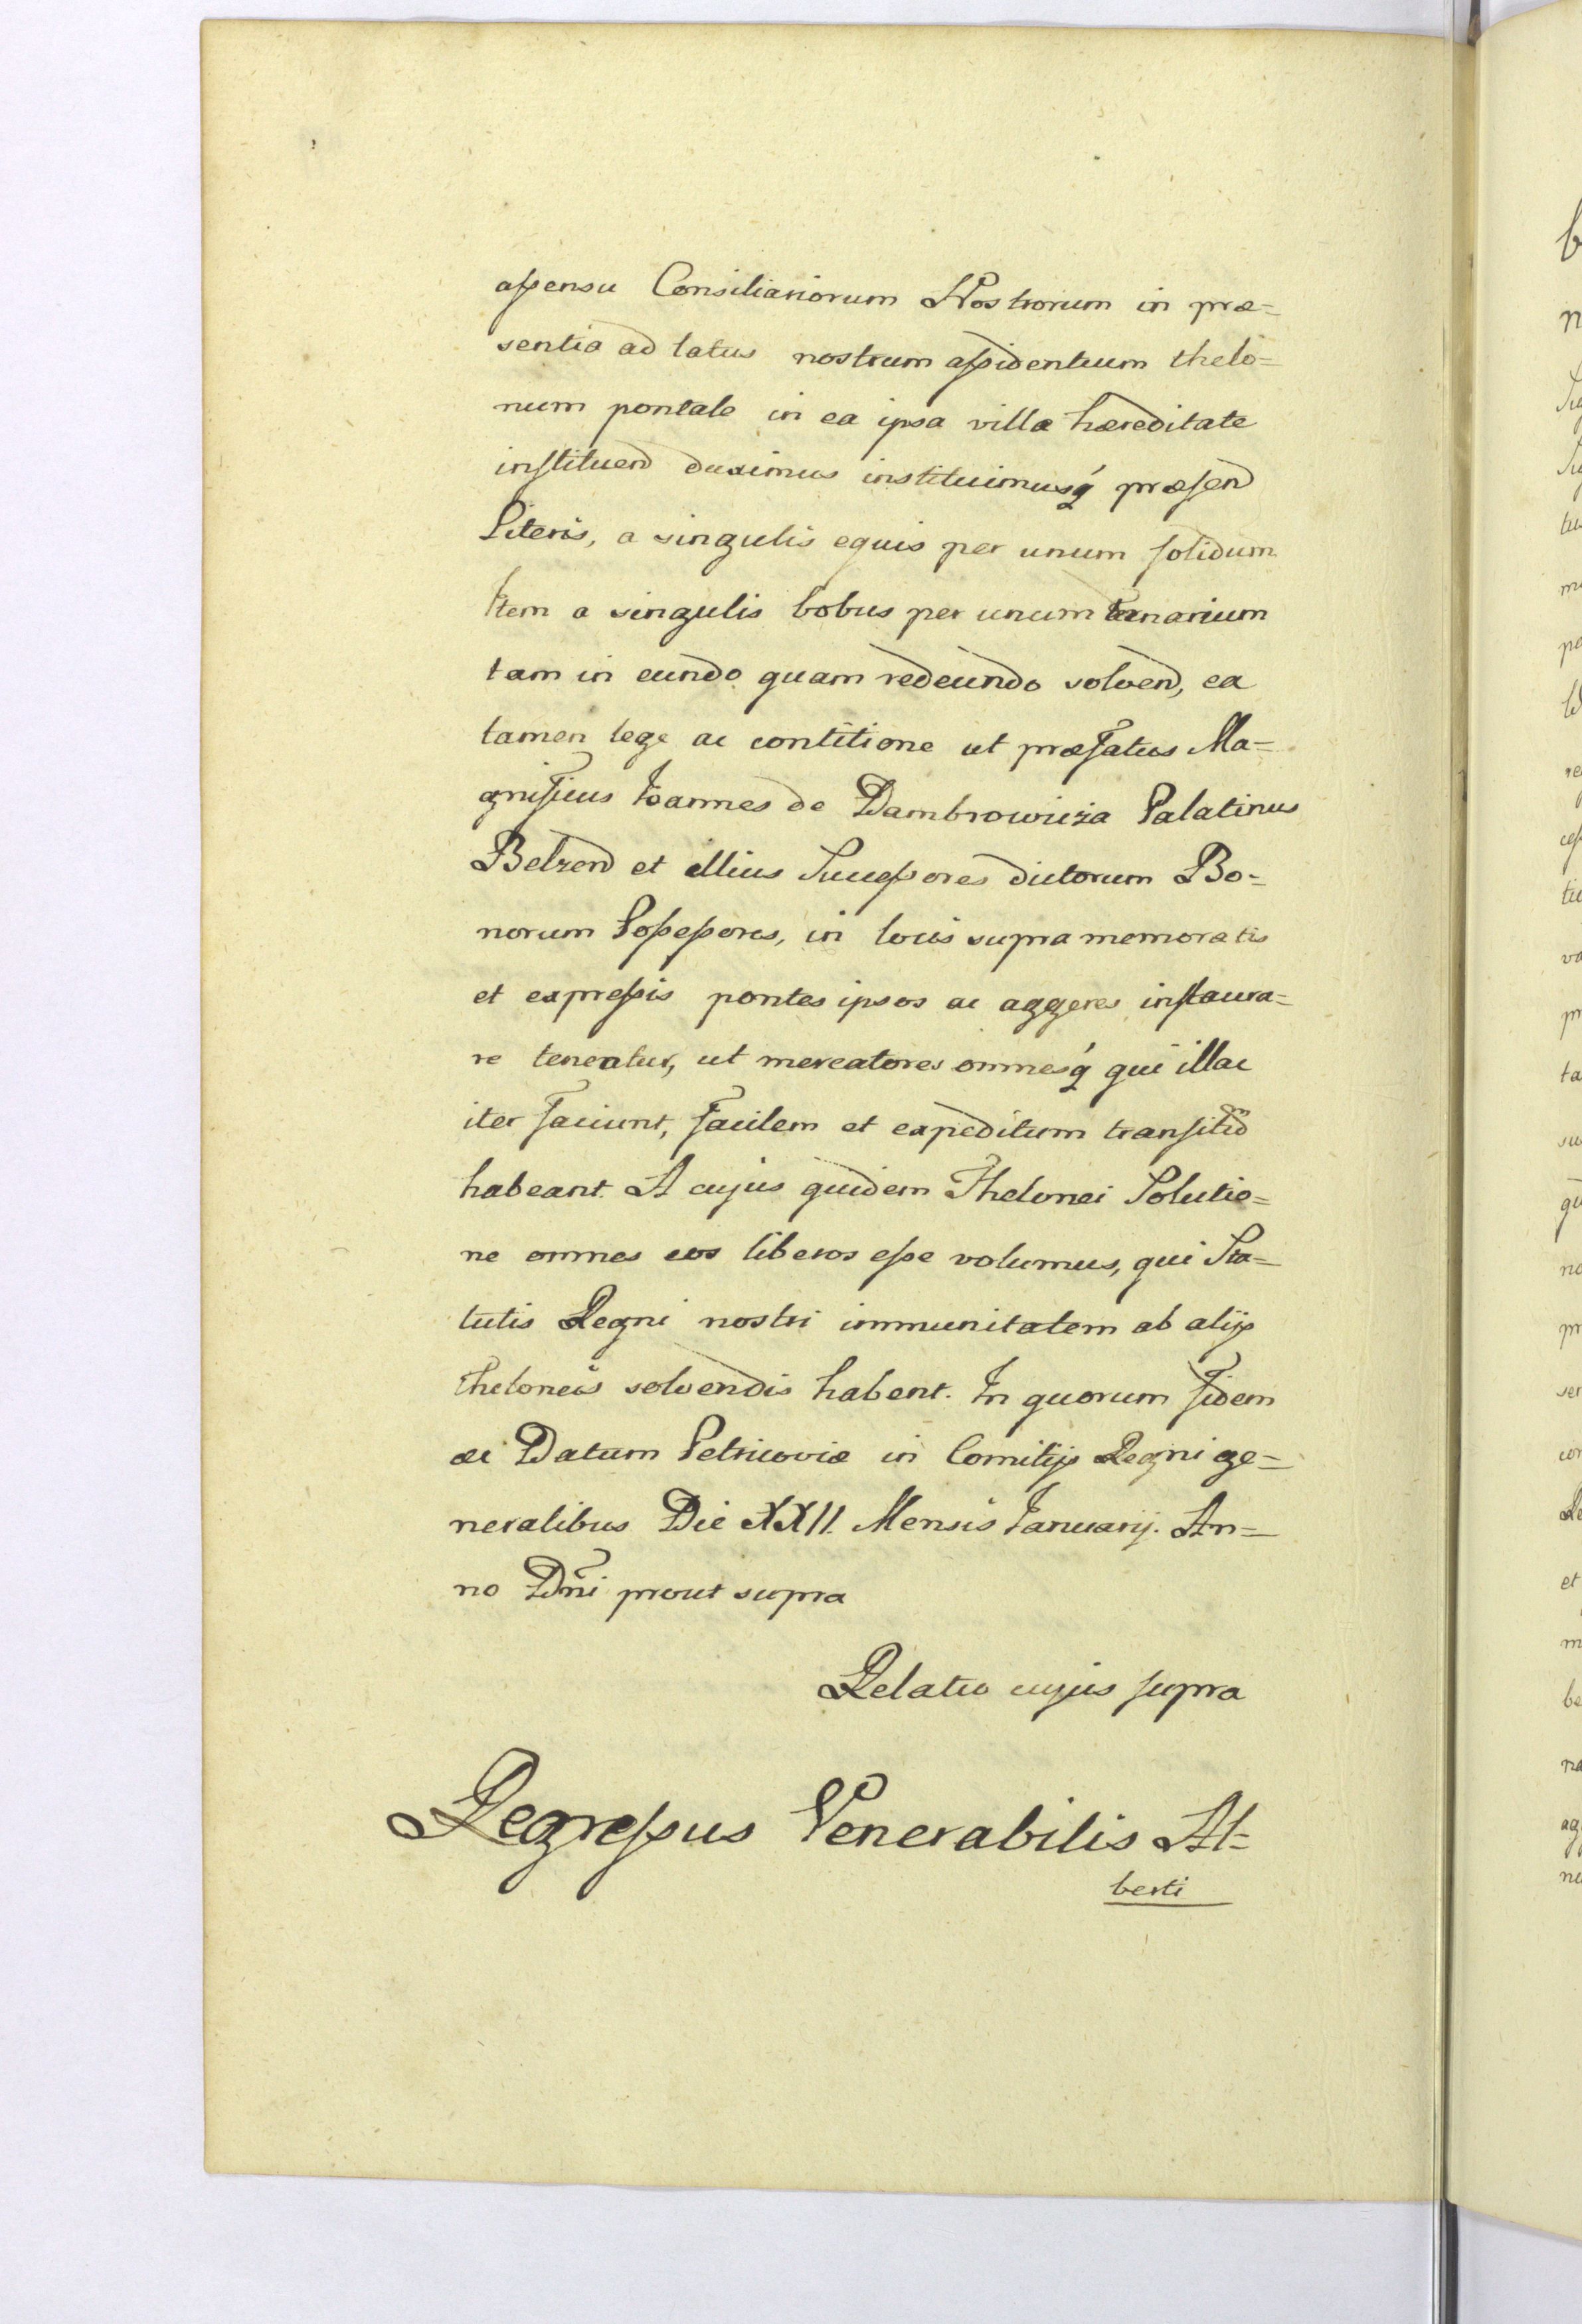 assensu Consiliariorum Nostrorum in præ=
sentia ad latus nostrum assidentium thelo=
num pontale in ea ipsa villæ hæreditate
instituend duximus instituimusq́ præsend
Literis, a singulis equis per unum solidum.
Item a singulis bobus per unum ternarium
tam in eundo quam redeundo solvend, ea
tamen lege ac contitione ut præfatus Ma=
gnificus Ioannes de Dambrowicza Palatinus
Belzend et illius Successores dictorum Bo=
norum Possessores, in locis supra memoratis
et expressis pontes ipsos ac aggeres instaura=
re teneatur, ut mercatores omnesq́ qui illac
iter faciunt, facilem et expeditum transitũ
habeant. A cujus quidem Thelonei Solutio=
ne omnes eos liberos esse volumus, qui Sta=
tutis Regni nostri immunitatem ab alijs
theloneis solvendis habent. In quorum fidem
ac Datum Petricoviæ in Comitijs Regni ge=
neralibus Die XXII. Mensis Ianuarij. An=
no Dñi prout supra
Relatio cujus supra
Regressus Venerabilis Al=
berti